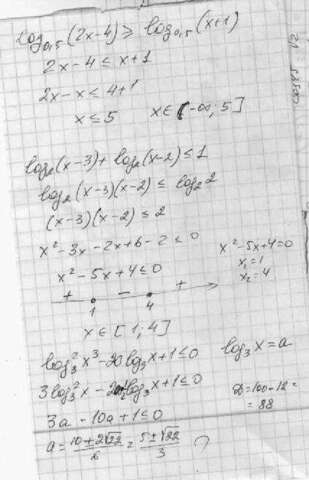 log₀,₅(2x-4) ≥ log₀,₅(x+1)
2x-4 ≤ x+1
2x-x ≤ 4+1
x ≤ 5   x∈[-∞; 5]
log₂(x-3) + log₂(x-2) ≤ 1
log₂(x-3)(x-2) ≤ log₂2
(x-3)(x-2) ≤ 2
x²-3x-2x+6-2 ≤ 0   x²-5x+4=0
x²-5x+4 ≤ 0   x₁=1
x₂=4
+ - +
1 4
x∈[1; 4]
log₃²x³ - 20log₃x+1 ≤ 0   log₃x=a
3log₃²x - log₃x+1 ≤ 0
3a - 10a+1 ≤ 0   D=100-12=
=88
a = (10±2√22)/6 = (5±√22)/3